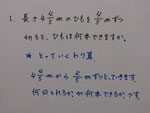 1. 長さ4 4/5 mのひもを 4/5 mずつ
切ると、ひもは何本できますか。
★ とっていくわり算。
4 4/5 mから 4/5 mずつとっていきます。
何回とれるか？が何本できるか？です。